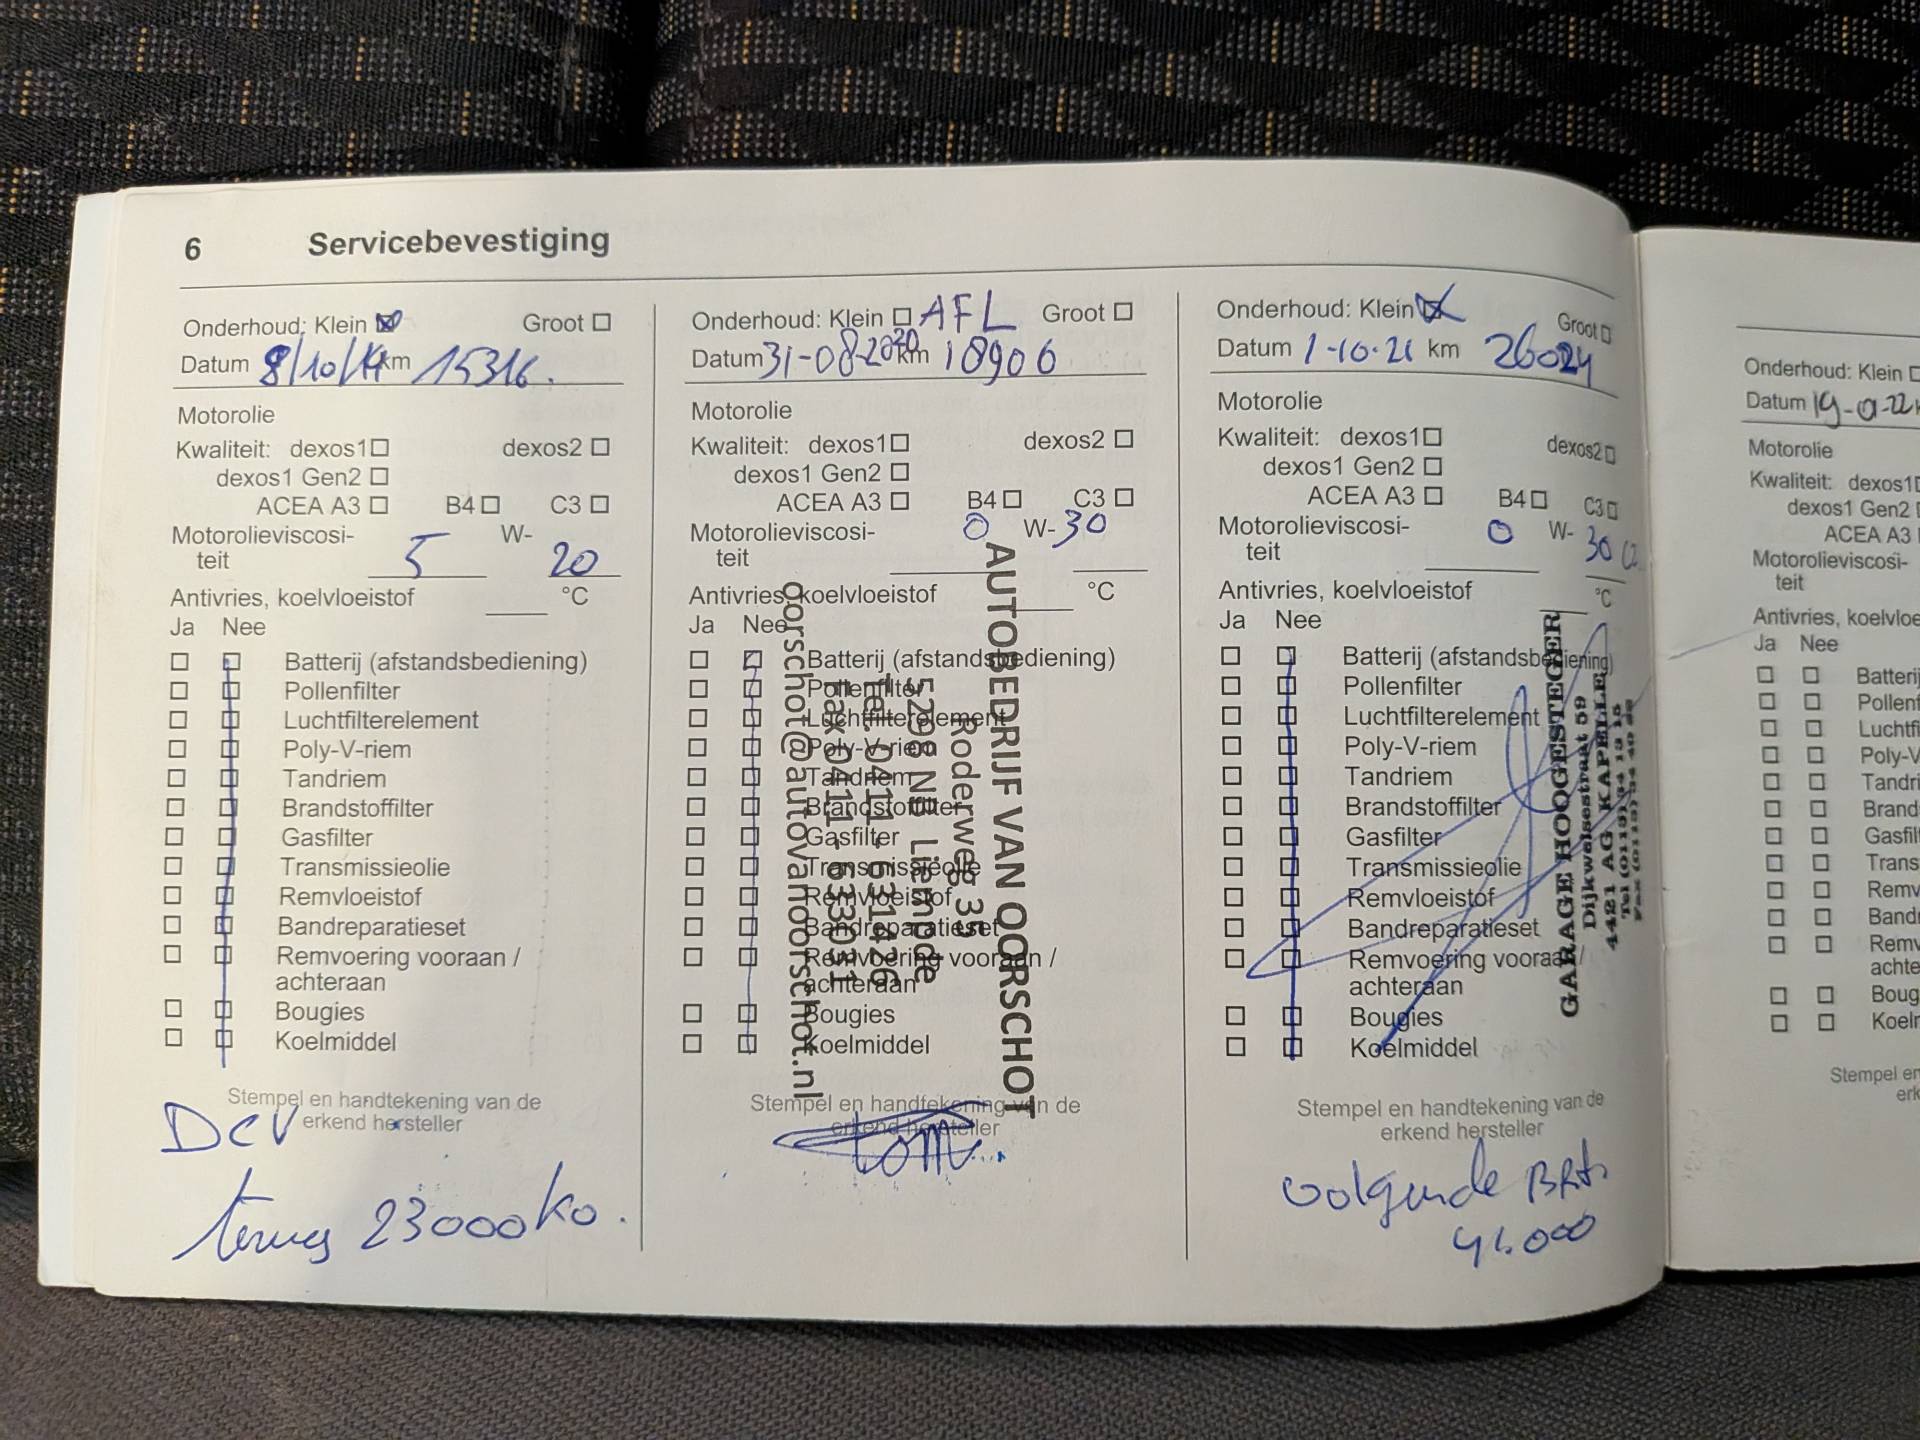 6 Servicebevestiging
Onderhoud: Klein Groot
Datum 8/10/19 km 15316.
Motorolie
Kwaliteit: dexos1 dexos2
dexos1 Gen2
ACEA A3 B4 C3
Motorolieviscosi-
teit 5 W- 20
Antivries, koelvloeistof °C
Ja Nee
Batterij (afstandsbediening)
Pollenfilter
Luchtfilterelement
Poly-V-riem
Tandriem
Brandstoffilter
Gasfilter
Transmissieolie
Remvloeistof
Bandreparatieset
Remvoering vooraan /
achteraan
Bougies
Koelmiddel
Stempel en handtekening van de
erkend hersteller
terug 23000
Onderhoud: Klein AFL Groot
Datum 31-08-2020 km 18906
Motorolie
Kwaliteit: dexos1 dexos2
dexos1 Gen2
ACEA A3 B4 C3
Motorolieviscosi-
teit 0 W-30
Antivries, koelvloeistof °C
Ja Nee
Batterij (afstandsbediening)
Pollenfilter
Luchtfilterelement
Poly-V-riem
Tandriem
Brandstoffilter
Gasfilter
Transmissieolie
Remvloeistof
Bandreparatieset
Remvoering vooraan /
achteraan
Bougies
Koelmiddel
Stempel en handtekening van de
erkend hersteller
AUTOBEDRIJF VAN OORSCHOT
Roderweg 35
5298 NB Liempde
Tel. 0411-631426
Fax 0411-633031
oorschot@autovanoorschot.nl
Onderhoud: Klein Groot
Datum 1-10-21 km 26024
Motorolie
Kwaliteit: dexos1 dexos2
dexos1 Gen2
ACEA A3 B4 C3
Motorolieviscosi-
teit 0 W- 30
Antivries, koelvloeistof °C
Ja Nee
Batterij (afstandsbediening)
Pollenfilter
Luchtfilterelement
Poly-V-riem
Tandriem
Brandstoffilter
Gasfilter
Transmissieolie
Remvloeistof
Bandreparatieset
Remvoering vooraan /
achteraan
Bougies
Koelmiddel
Stempel en handtekening van de
erkend hersteller
GARAGE HOOGESTEGER
Dijkwelsestraat 59
4421 AG KAPELLE
volgende BRT.
41.000
Onderhoud: Klein
Datum
Motorolie
Kwaliteit: dexos1
dexos1 Gen2
ACEA A3
Motorolieviscosi-
teit
Antivries, koelvloe
Ja Nee
Batterij
Pollenf
Luchtfi
Poly-V
Tandri
Brand
Gasfil
Trans
Remv
Band
Remv
achte
Boug
Koeln
Stempel en
erk